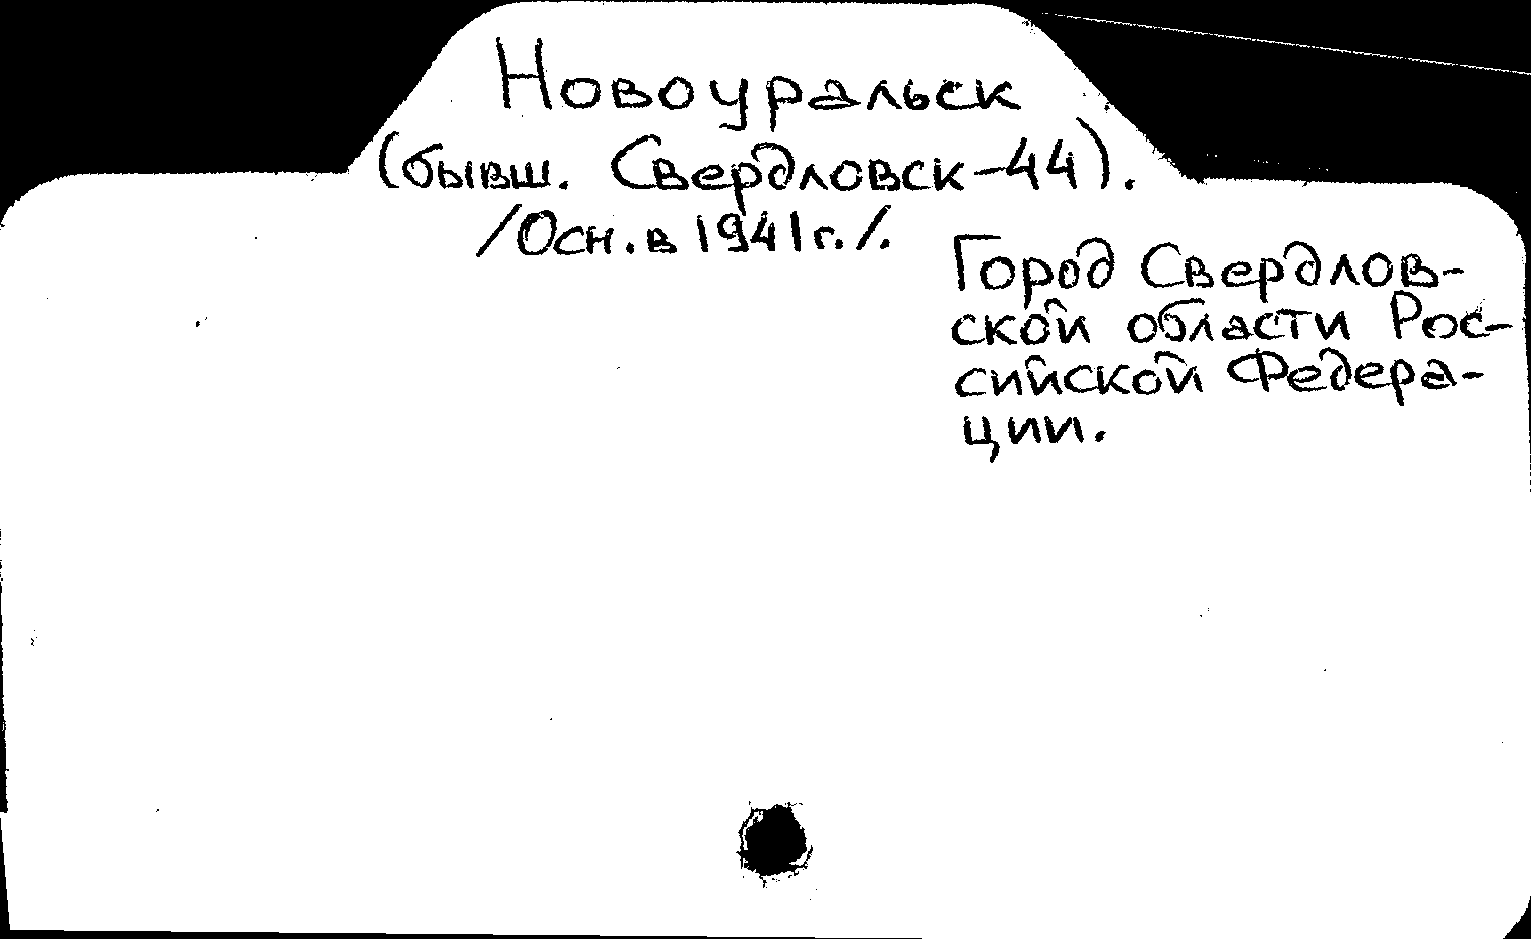 Новоуральск
(бывш. Свердловск-44).
/Осн. в 1941 г./.
Город Свердлов-
ской области Рос-
сийской Федера-
ции.